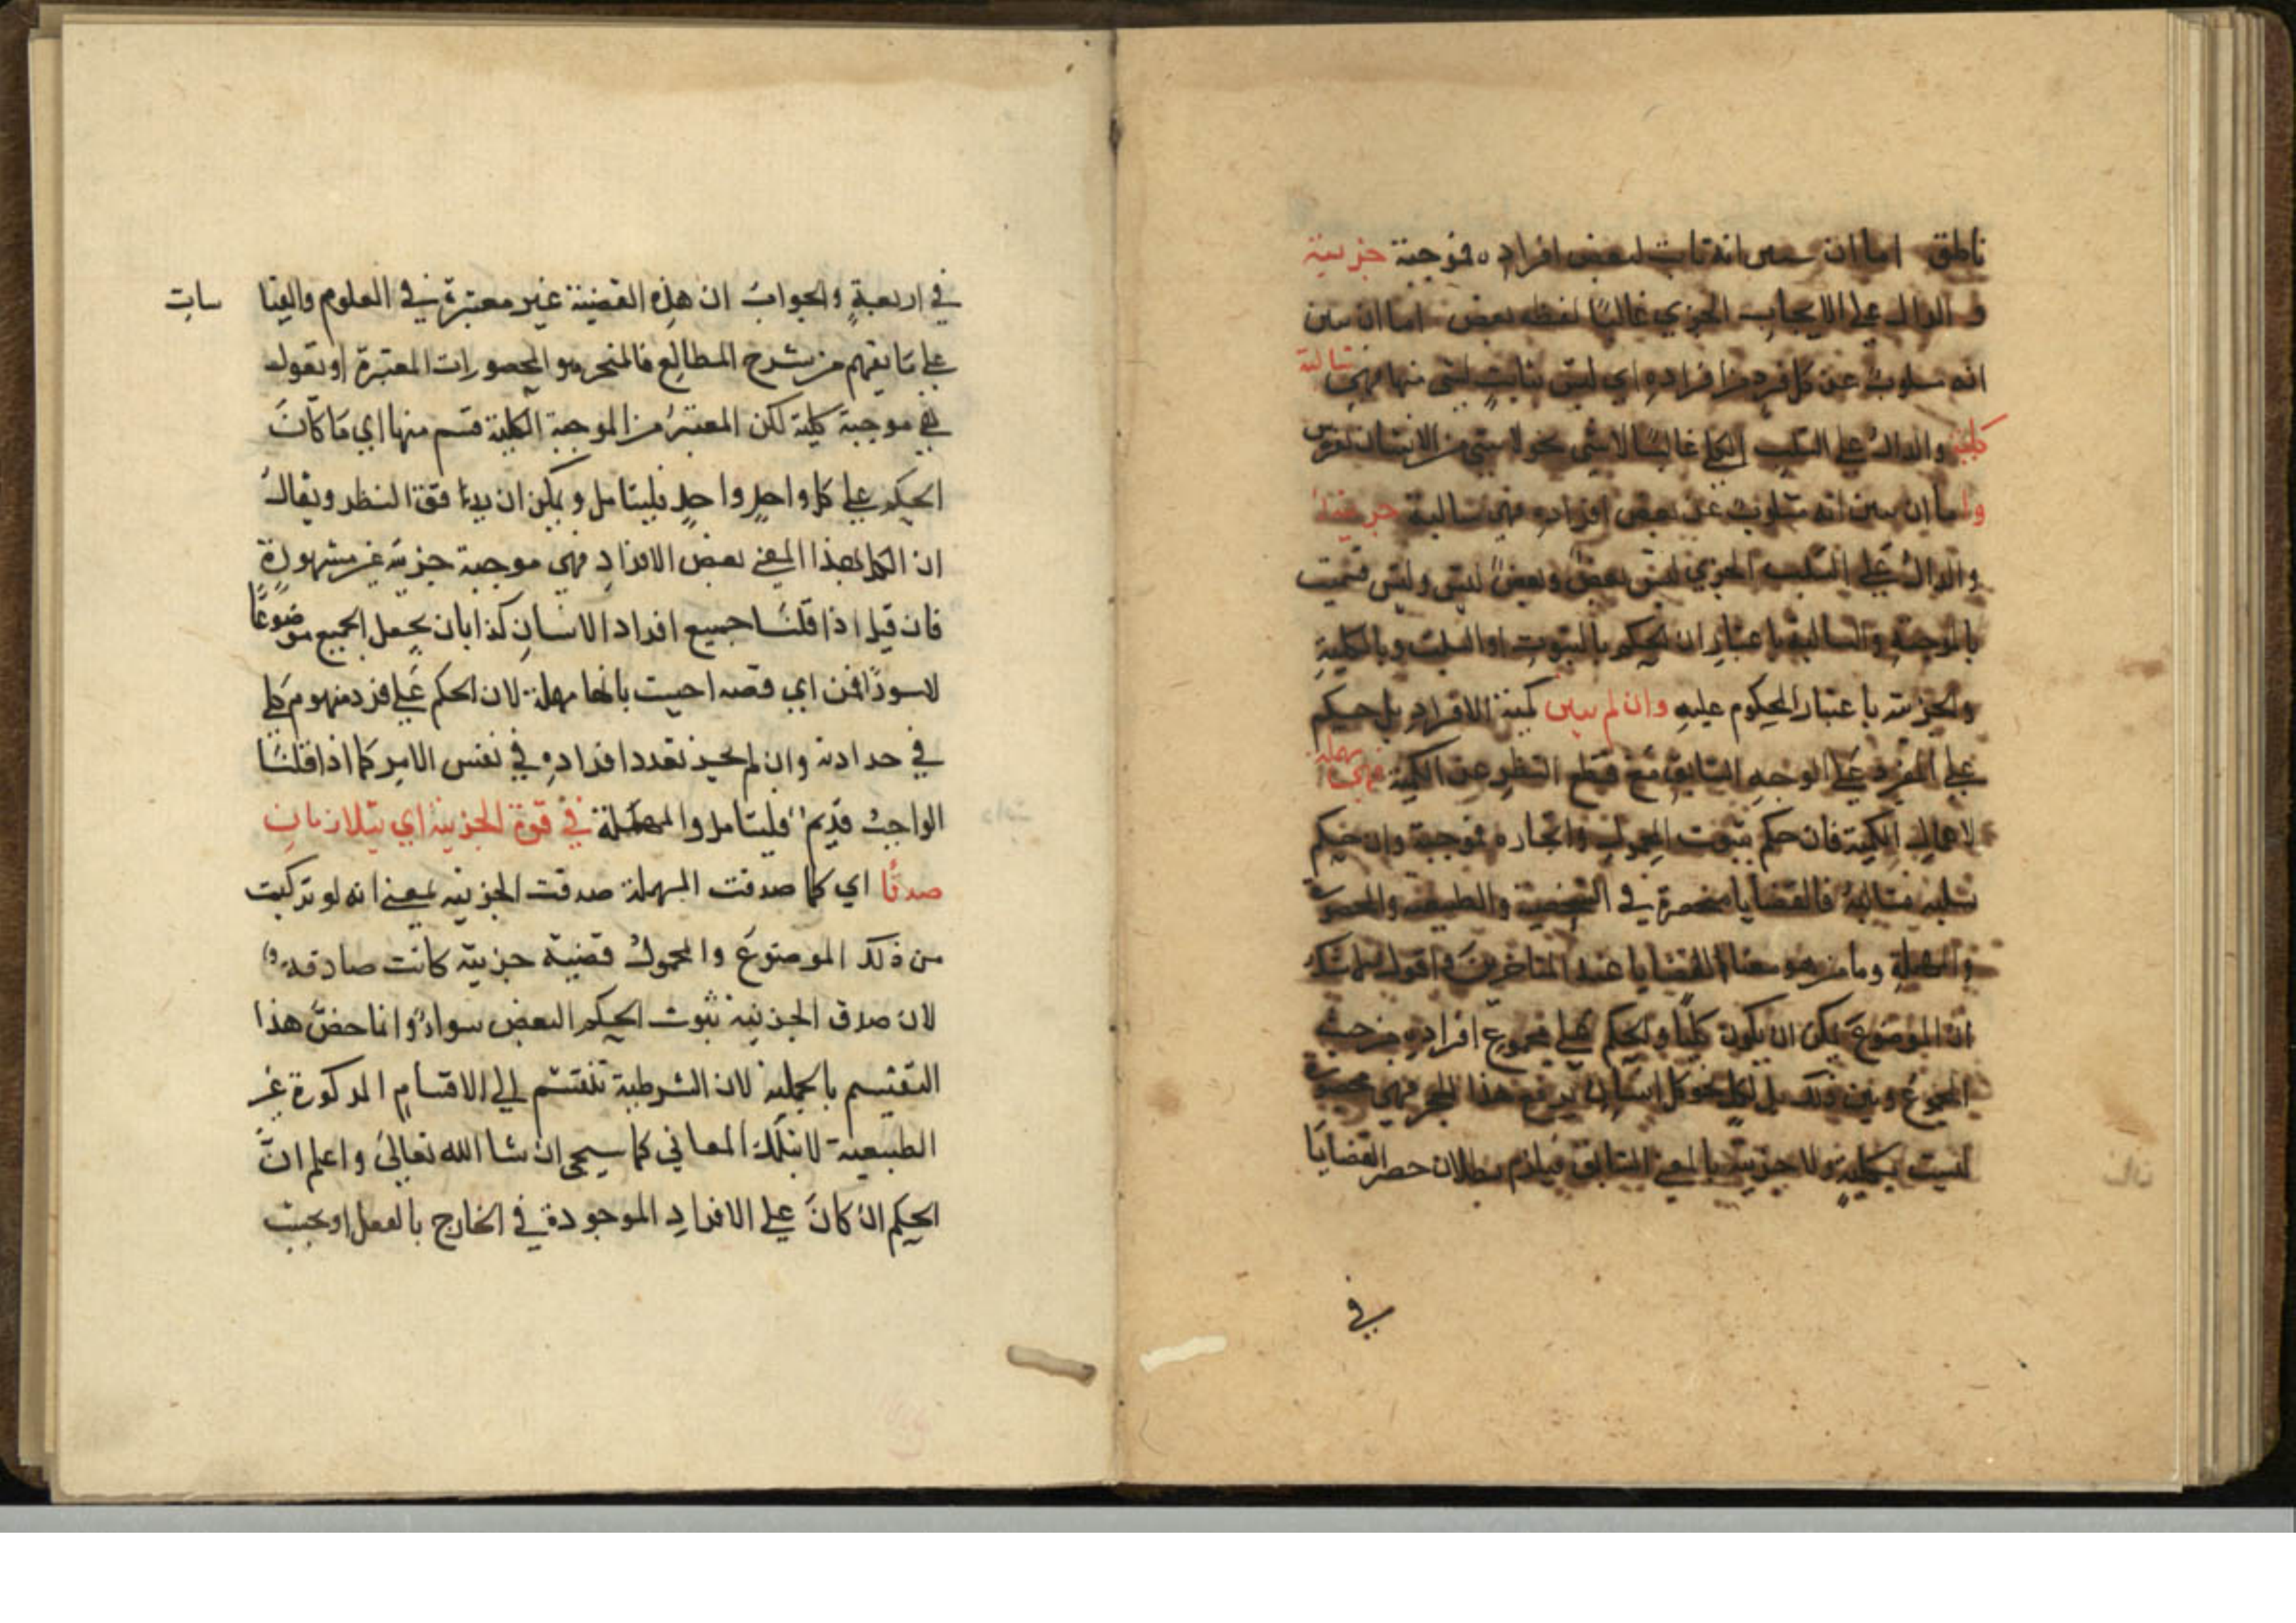 ناطق اما ان يبين انه ثابت لبعض افراده فموجبة جزيية
و الدال على الايجاب الجزي غالبًا لفظه بعض اما ان يبين
انه مسلوب عن كل فرد من افراده اي ليس بثابت لشي منها فهي سالبة
كلية والدال على السلب الكلي غالبًا لاشي نحو لا شي من الانسان بفرس
واما ان يبين انه مسلوب عن بعض افراده فهي سالبة جزيية
والدال على السلب الجزي ليس بعض وبعض ليس وليس فسميت
بالموجبة والسالبة باعتبار ان الحكم بالثبوت او السلب وبالكلية
والجزيية باعتبار المحكوم عليه وان لم يبين كمية الافراد بل حكم
على الفرد على الوجه السابق مع قطع النظر عن الكمية فهي مهملة
لاهمال الكمية فان حكم بثبوت المحمول واتحاده فموجبة وان حكم
بسلبه فسالبة فالقضايا منحصرة في الشخصية والطبيعية والمحصورة
والمهملة وما من هو معنا القضايا عند المتاخرين واقول
ان الموضوع يمكن ان يكون كليًا والحكم على مجموع افراده من حيث
المجموع وبين ذلك بل لكل نحو كل انسان يرفع هذا الحجر فهي محصورة
ليست بكلية ولا جزيية بالمعنى السابق فيلزم بطلان حصر القضايا
في
في اربعةٍ والجواب ان هذه القضية غير معتبرة في العلوم والقيا سات
على ما يفهم من شرح المطالع فالمنحر هو المحصورات المعتبرة او نقول
هي موجبة كلية لكن المعتبر من الموجبة الكلية قسم منها اي ما كان
الحكم على كل واحدٍ واحدٍ فليتامل ويمكن ان يدقق النظر ويقال
ان الكل بهذا المعني بعض الافراد فهي موجبة جزيه غير مشهورة
فان قيل اذا قلنا جميع افراد الانسان كذا بان يجعل الجميع موضوعًا
لاسورًا فمن اي قصه احيت بانها مهملة لان الحكم على فرد مفهوم كلي
في حد ادته وان لم يجز تعدد افراده في نفس الامر كما اذا قلنا
الواجب قديم فليتامل والمهملة في قوة الجزيية اي يتلازمان
صدقًا اي كلما صدقت المهملة صدقت الجزييه بمعني انه لو تركبت
من ذلك الموضوع والمحمول قضية جزيية كانت صادقه
لان صدق الجزييه ثبوت الحكم البعض سوا وانما خص هذا
التقسيم بالحمليه لان الشرطية تنقسم الى الاقسام المذكورة غير
الطبيعية لا بتلك المعاني كما سيجي ان شا الله تعالى واعلم ان
الحكم ان كان على الافراد الموجودة في الخارج بالفعل او بحيث